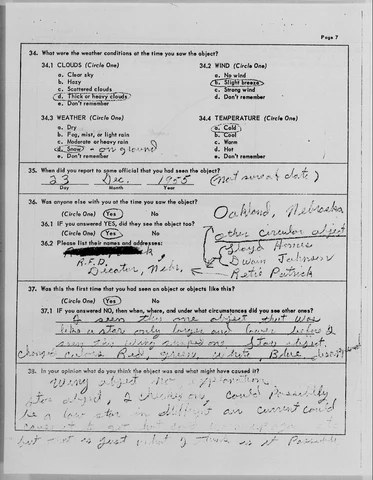 Page 7
34. What were the weather conditions at the time you saw the object?
34.1 CLOUDS (Circle One) 34.2 WIND (Circle One)
a. Clear sky a. No wind
b. Hazy b. Slight breeze
c. Scattered clouds c. Strong wind
d. Thick or heavy clouds d. Don't remember
e. Don't remember
34.3 WEATHER (Circle One) 34.4 TEMPERATURE (Circle One)
a. Dry a. Cold
b. Fog, mist, or light rain b. Cool
c. Moderate or heavy rain c. Warm
d. Snow - on ground d. Hot
e. Don't remember e. Don't remember
35. When did you report to some official that you had seen the object?
23 Dec. 1955 (Not sure of date)
Day Month Year
36. Was anyone else with you at the time you saw the object?
(Circle One) Yes No Oakland, Nebraska
36.1 IF you answered YES, did they see the object too? other circular object
(Circle One) Yes No
36.2 Please list their names and addresses: Dwain Johnson
R.F.D. Patrick
Decator, Nebr.
37. Was this the first time that you had seen an object or objects like this?
(Circle One) Yes No
37.1 IF you answered NO, then when, where, and under what circumstances did you see other ones?
I seen this one object that was
like a star only larger and lower before I
seen the wing shaped one. Star object
changed colors Red, green, white Blue
38. In your opinion what do you think the object was and what might have caused it?
Wing object no explanation
Star object, I could Possibly
be a low star in different air current could
but that is just what I think is it Possible